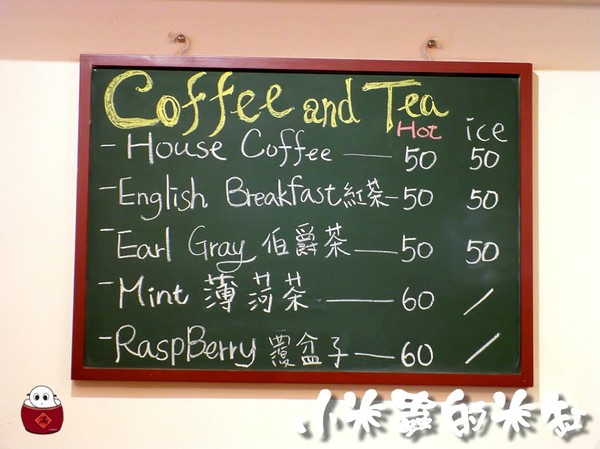 Coffee and Tea
Hot ice
- House Coffee — 50 50
- English Breakfast紅茶 - 50 50
- Earl Gray 伯爵茶 — 50 50
- Mint 薄荷茶 — 60 /
- RaspBerry 覆盆子 — 60 /